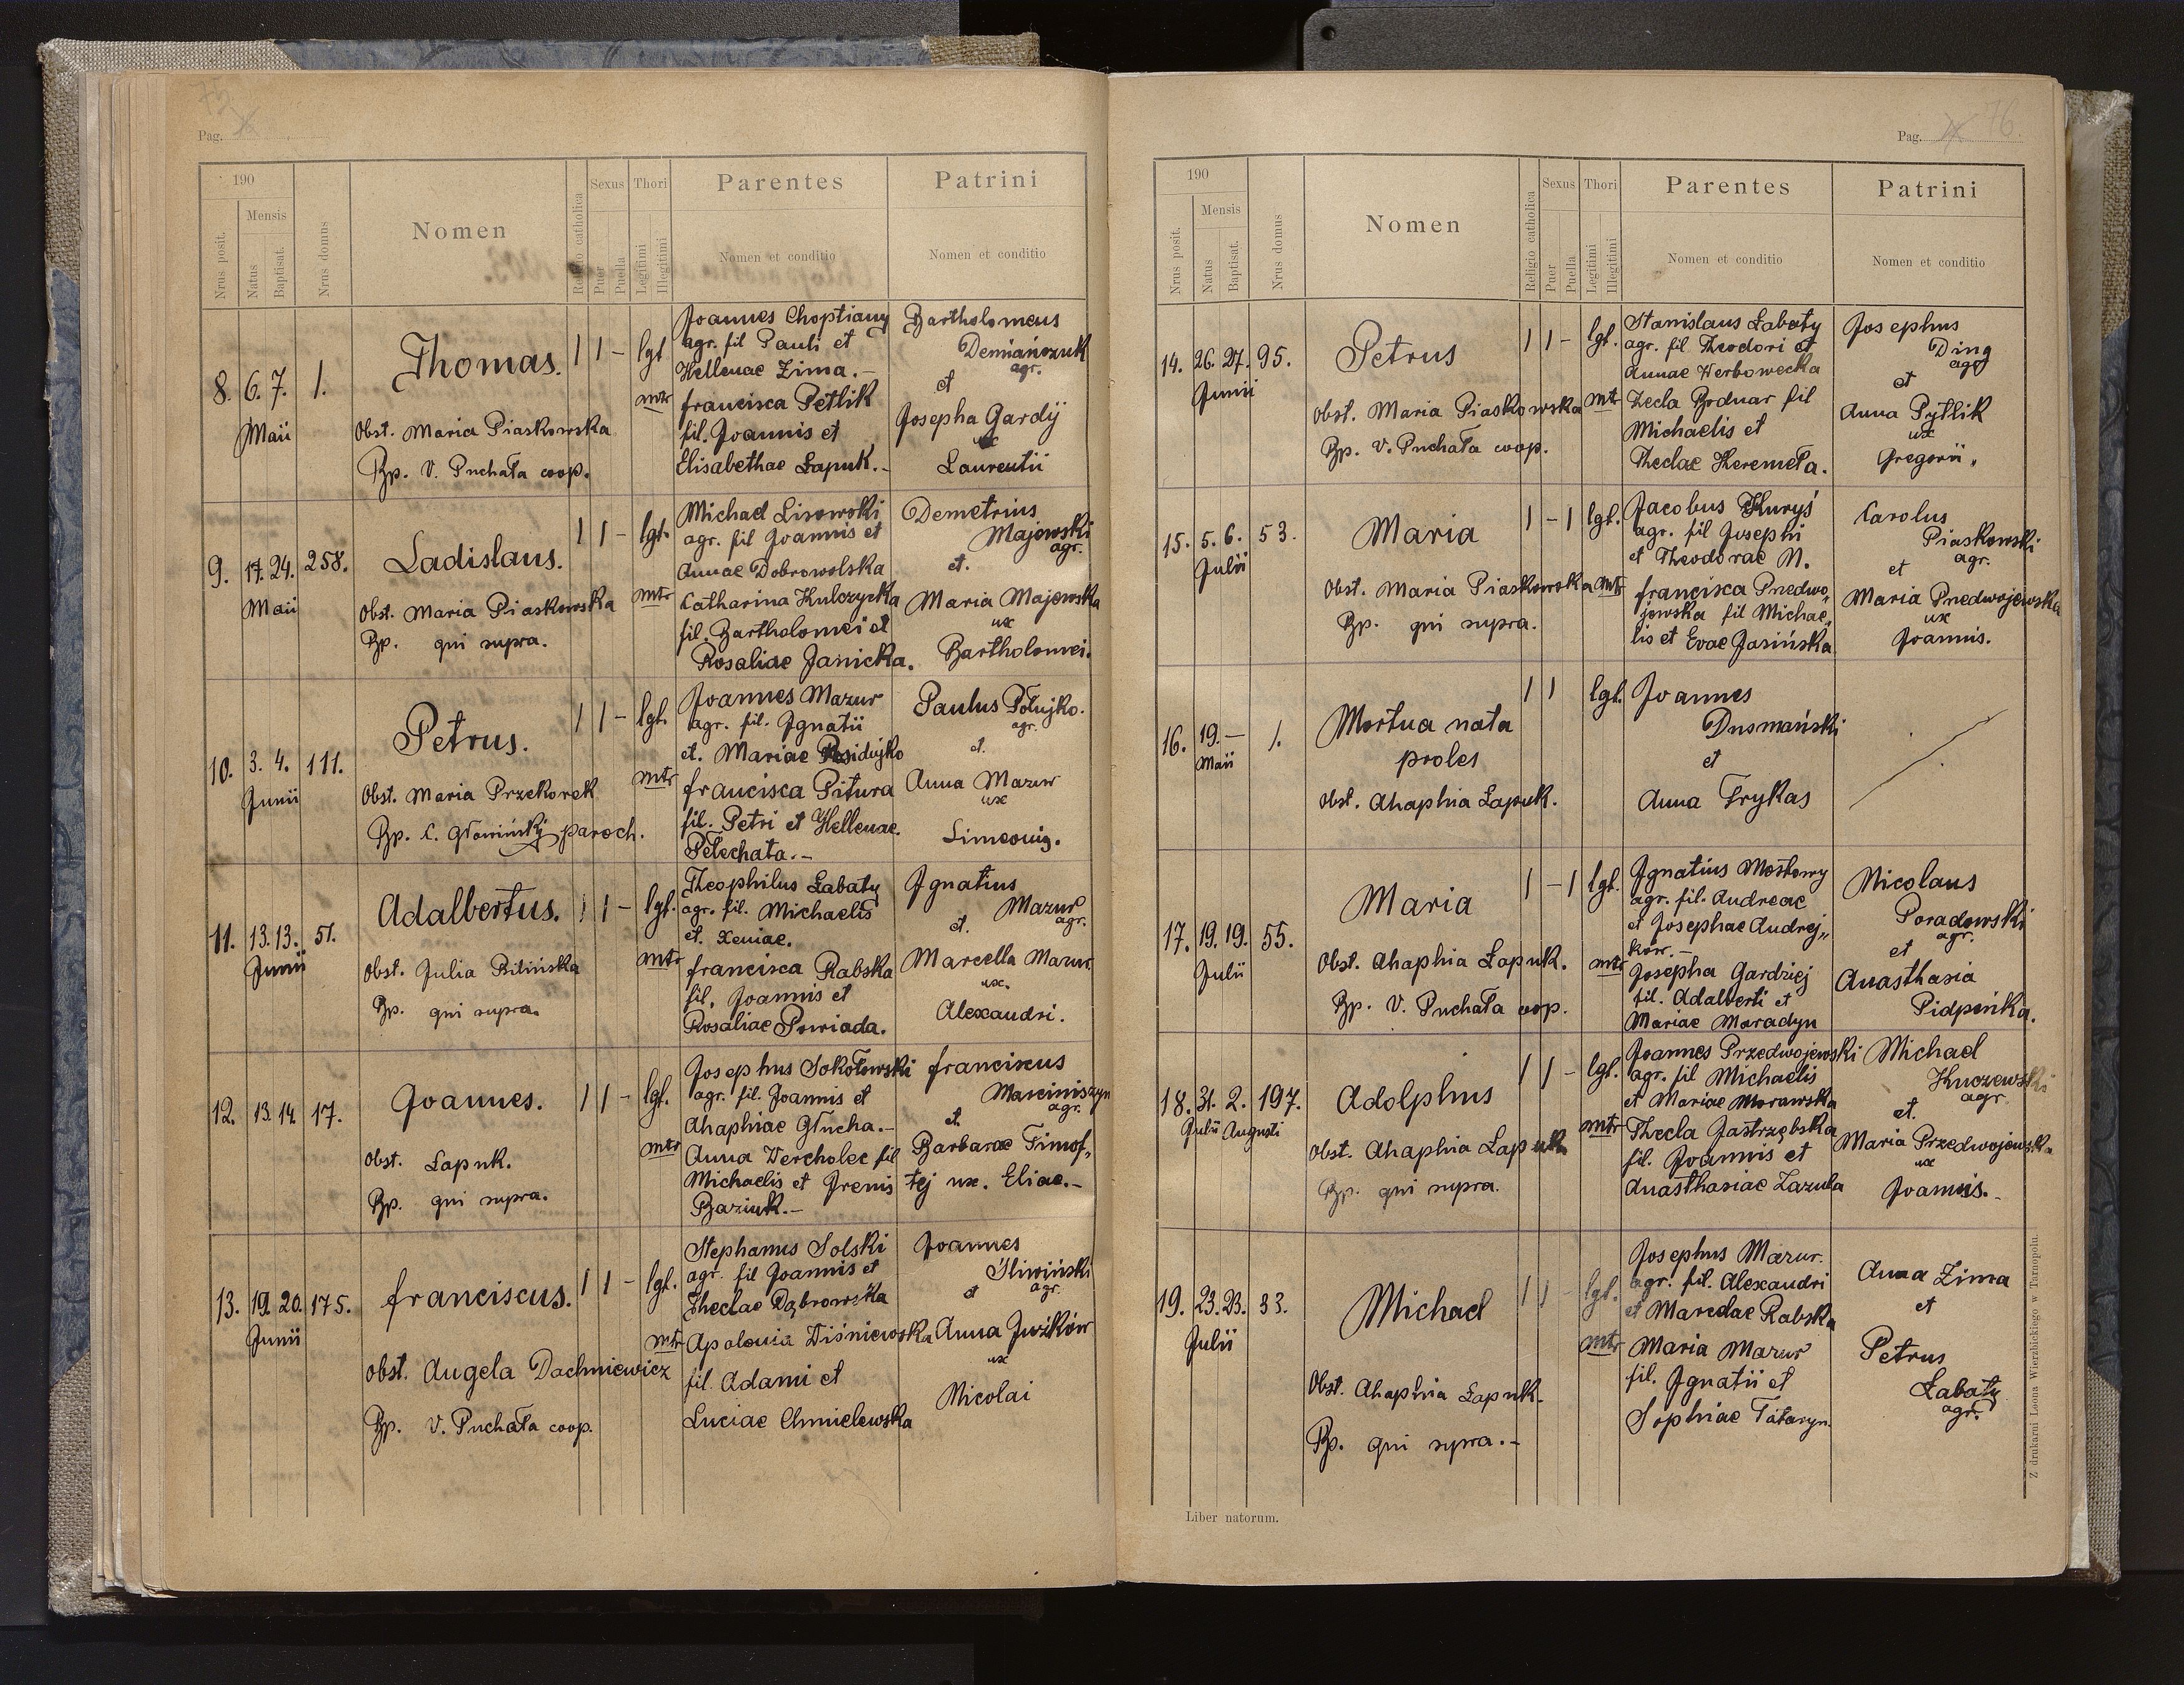 75
Pag.
190
Nrus posit.
Mensis
Natus
Baptisat.
Nrus domus
Nomen
Religio catholica
Sexus
Puer
Puella
Thori
Legitimi
Illegitimi
Parentes
Nomen et conditio
Patrini
Nomen et conditio
8. 6. 7. 1.
Maii
Thomas.
1 1 - lgt
Obst. Maria Piaskowska
Bp. V. Puchała coop.
Joannes Choptiany
agr. fil Pauli et
Hellenae Zima.-
mtr Francisca Petlik
fil. Joannis et
Elisabethae Łapuk.-
Bartholomeus
Demiańczuk
agr.
et
Josepha Gardij
ux
Laurentii
9. 17. 24. 258.
Maii
Ladislaus.
1 1 - lgt.
Obst. Maria Piaskowska
Bp. qui supra.
Michael Lisowski
agr. fil Joannis et
Annae Dobrowolska
mtr Catharina Kulczycka
fil. Bartholomei et
Rosaliae Janicka.
Demetrius
Majewski
agr.
et.
Maria Majewska
ux
Bartholomei.
10. 3. 4. 111.
Junii
Petrus.
1 1 - lgt.
Obst. Maria Przekorek
Bp. C. Głowiński paroch.
Joannes Mazur
agr. fil. Ignatii
et. Mariae
mtr francisca Pitura
fil. Petri et Hellenae
Pełechata.-
Paulus Połujko.
agr.
et.
Anna Mazur
ux
Simeonis.
11. 13. 13. 51.
Junii
Adalbertus.
1 1 - lgt.
Obst. Julia Bilińska
Bp. qui supra.
Theophilus Łabaty
agr. fil. Michaelis
et. Xeniae.
mtr francisca Rabska
fil. Joannis et
Rosaliae Powiada.
Ignatius
Mazur
agr.
et.
Marcella Mazur
ux.
Alexandri.
12. 13. 14. 17.
Joannes.
1 1 - lgt.
Obst. Łapuk.
Bp. qui supra.
Josephus Sokołowski
agr. fil. Joannis et
Ahaphiae Głucha.-
mtr Anna Wercholec fil
Michaelis et Irenis
Baziuk.-
franciscus
Marciniszyn
agr.
et.
Barbarae Timof„
tej ux. Eliae.-
13. 19. 20. 175.
Junii
franciscus.
1 1 - lgt.
Obst. Angela Dachniewicz
Bp. V. Puchała coop.
Stephanus Solski
agr. fil Joannis et
Theclae Dąbrowska
mtr Apolonia Wiśniewska
fil. Adami et
Luciae Chmielewska
Joannes
Śliwiński
agr.
et
Anna Juzików
ux
Nicolai
76.
Pag.
190
Nrus posit.
Mensis
Natus
Baptisat.
Nrus domus
Nomen
Religio catholica
Sexus
Puer
Puella
Thori
Legitimi
Illegitimi
Parentes
Nomen et conditio
Patrini
Nomen et conditio
14. 26. 27. 95.
Junii
Petrus
1 1 - lgt.
Obst. Maria Piaskowska
Bp. V. Puchała coop.
Stanislaus Łabaty
agr. fil Theodori et
Annae Werbowecka
mtr Tecla Bodnar fil
Michaelis et
Theclae Keremeta.
Josephus
Ding
agr
et
Anna Pytlik
ux
Gregorii„
15. 5. 6. 53.
Julii
Maria
1 - 1 lgt.
Obst. Maria Piaskowska
Bp. qui supra.
Jacobus Kuryś
agr. fil Josephi
et Theodorae N.
mtr francisca Predwo„
jewska fil Michae„
lis et Evae Jasińska
Carolus
Piaskowski
agr.
et
Maria Predwojewska
ux
Joannis.
16. 19. - 1.
Maii
Mortua nata
proles
1 1 lgt.
Obst. Ahaphia Łapuk.
Joannes
Dusmański
et
Anna Frykas
17. 19. 19. 55.
Julii
Maria
1 - 1 lgt.
Obst. Ahaphia Łapuk.
Bp. V. Puchała coop.
Ignatius Mostowy
agr. fil. Andreae
et Josephae Andrej„
ków.-
mtr Josepha Gardziej
fil. Adalberti et
Mariae Maradyn
Nicolaus
Poradowski
agr.
et
Anasthasia
Pidpinka.
18. 31. 2. 197.
Julii Augusti
Adolphus
1 1 - lgt.
Obst. Ahaphia Łapuk
Bp. qui supra.
Joannes Przedwojewski
agr. fil Michaelis
et Mariae Morawska
mtr Thecla Jastrzębska
fil. Joannis et
Anasthasiae Zazula
Michael
Kuczewski
agr.
et.
Maria Przedwojewska
ux
Joannis.-
19. 23. 23. 33.
Julii
Michael
1 1 - lgt.
Obst. Ahaphia Łapuk.
Bp. qui supra.-
Josephus Mazur.
agr. fil. Alexandri
et Marcelae Rabska
mtr Maria Mazur
fil. Ignatii et
Sophiae Tataryn.
Anna Zima
et
Petrus
Łabaty
agr.
Liber natorum.
Z drukarni Leona Wierzbickiego w Tarnopolu.